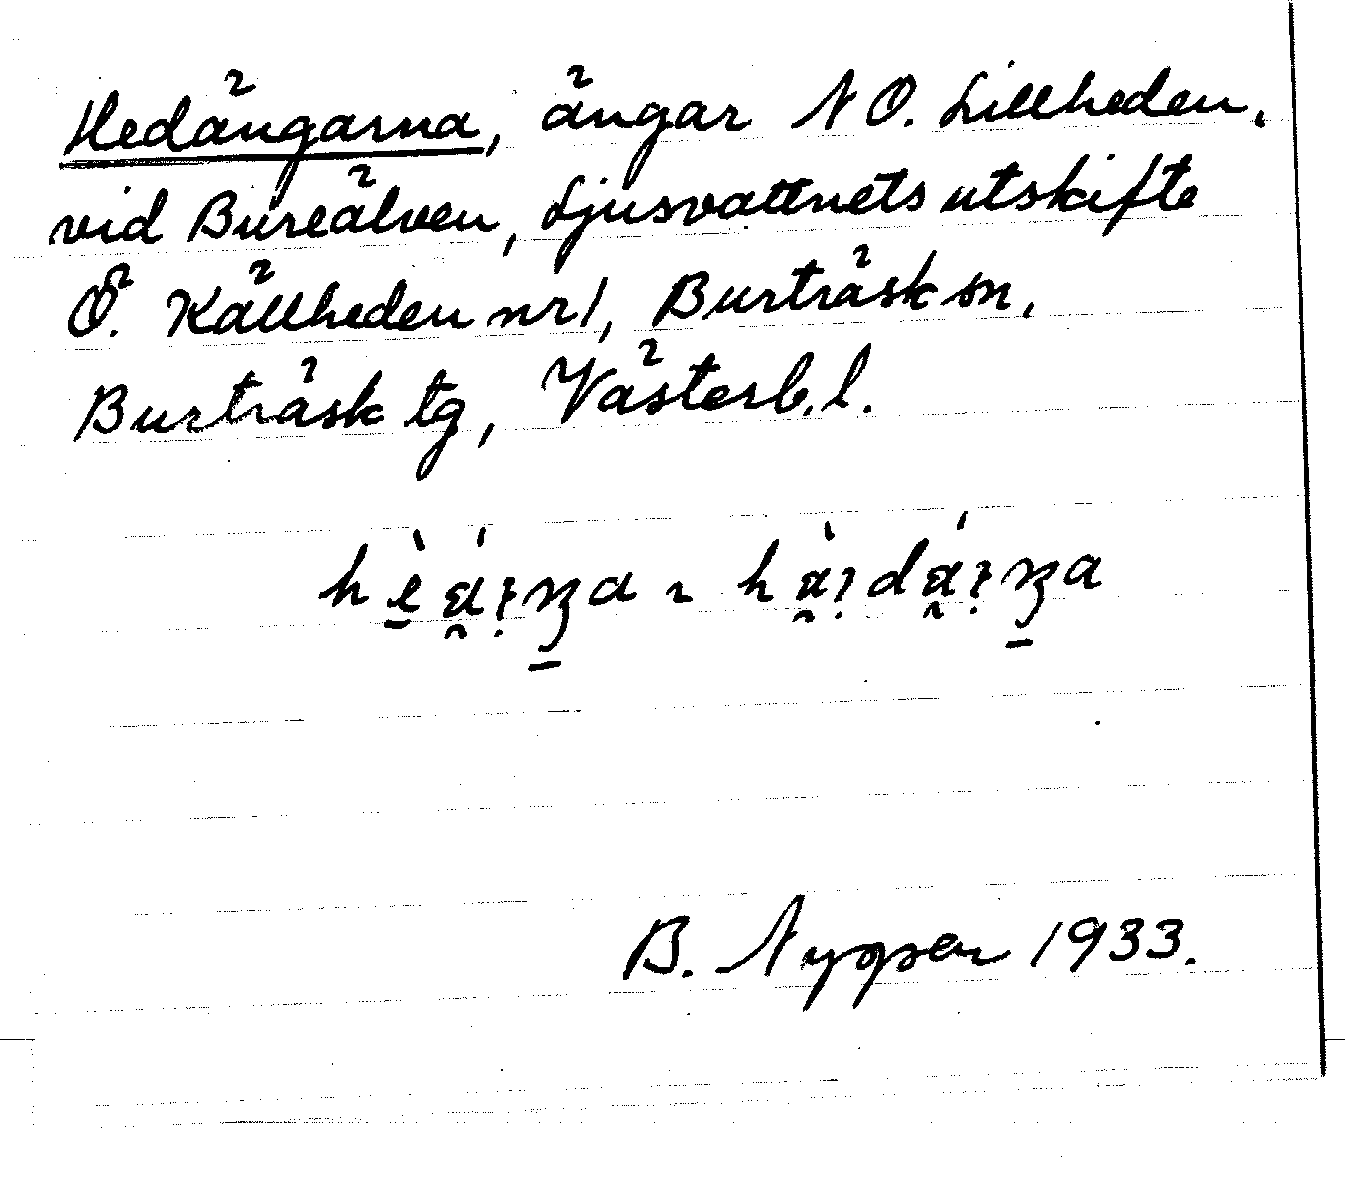 Hedängarna, ängar NO. Lillheden,
vid Bureälven, Ljusvattnets utskifte
Ö. Källheden nr 1, Burträsk sn,
Burträsk tg, Västerb. l.
B. 1933.